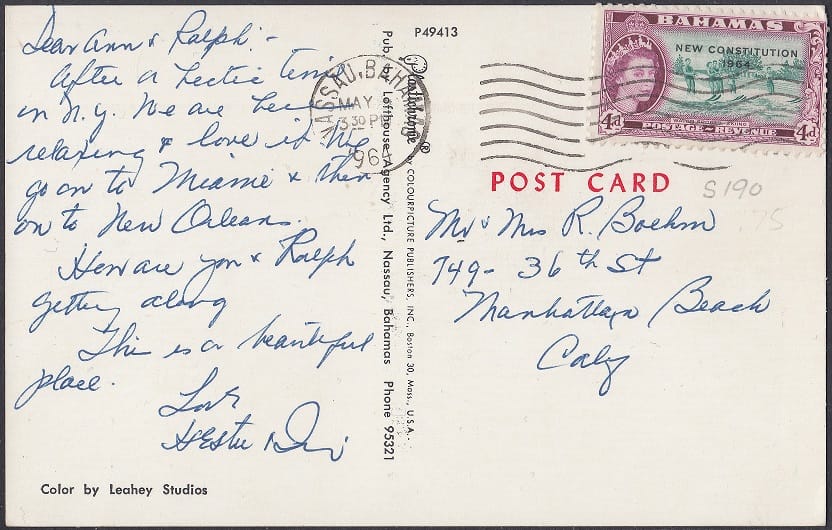 Dear Ann & Ralph:-
After a hectic time
in N.Y. We are here
relaxing & love it. We
go on to Miami & then
on to New Orleans.
How are you & Ralph
getting along
This is a beautiful
place.
Love
Color by Leahey Studios
Pub. by Lofthouse Agency Ltd., Nassau, Bahamas Phone 95321
Plastichrome ® by COLOURPICTURE PUBLISHERS, INC., Boston 30, Mass., U.S.A.
P49413
NASSAU, BAHAMAS
MAY
3 30 PM
196
BAHAMAS
NEW CONSTITUTION
1964
4d
4d
POSTAGE & REVENUE
POST CARD
S190
.75
Mr & Mrs R. Boehm
749- 36th St
Manhattan Beach
Calif